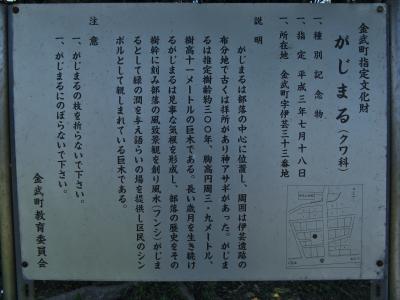 金武町指定文化財
がじまる（クワ科）
一、種別 記念物
一、指定 平成三年七月十八日
一、所在地 金武町字伊芸三十三番地
説明
がじまるは部落の中心に位置し、周囲は伊芸遺跡の
布分地で古くは拝所があり神アサギがあった。がじま
るは指定樹齢約三〇〇年、胸高円周三・九メートル、
樹高十一メートルの巨木である。長い歳月を生き続け
るがじまるは見事な気根を形成し、部落の歴史をその
樹幹に刻み部落の風致景観を創り風水（フンシ）がじま
るとして緑の潤を与え語らいの場を提供し区民のシン
ボルとして親しまれている巨木である。
注意
一、がじまるの枝を折らないで下さい。
一、がじまるにのぼらないで下さい。
金武町教育委員会